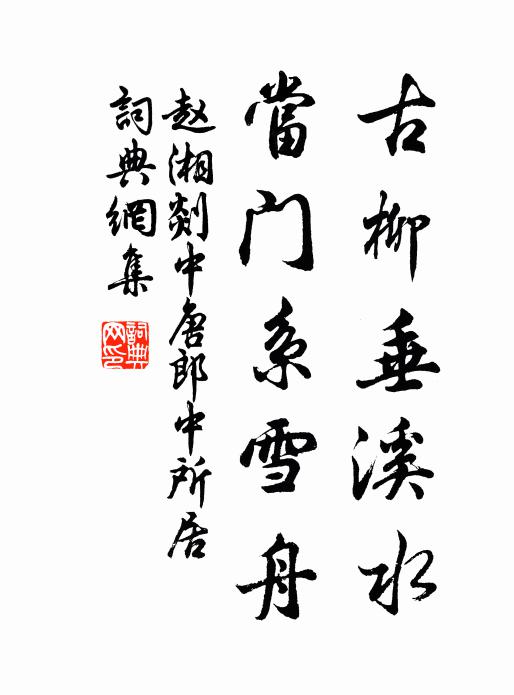 古柳垂溪水
當门系雪舟
赵湘剡中唐郎中所居
詞典網集
詞典网印